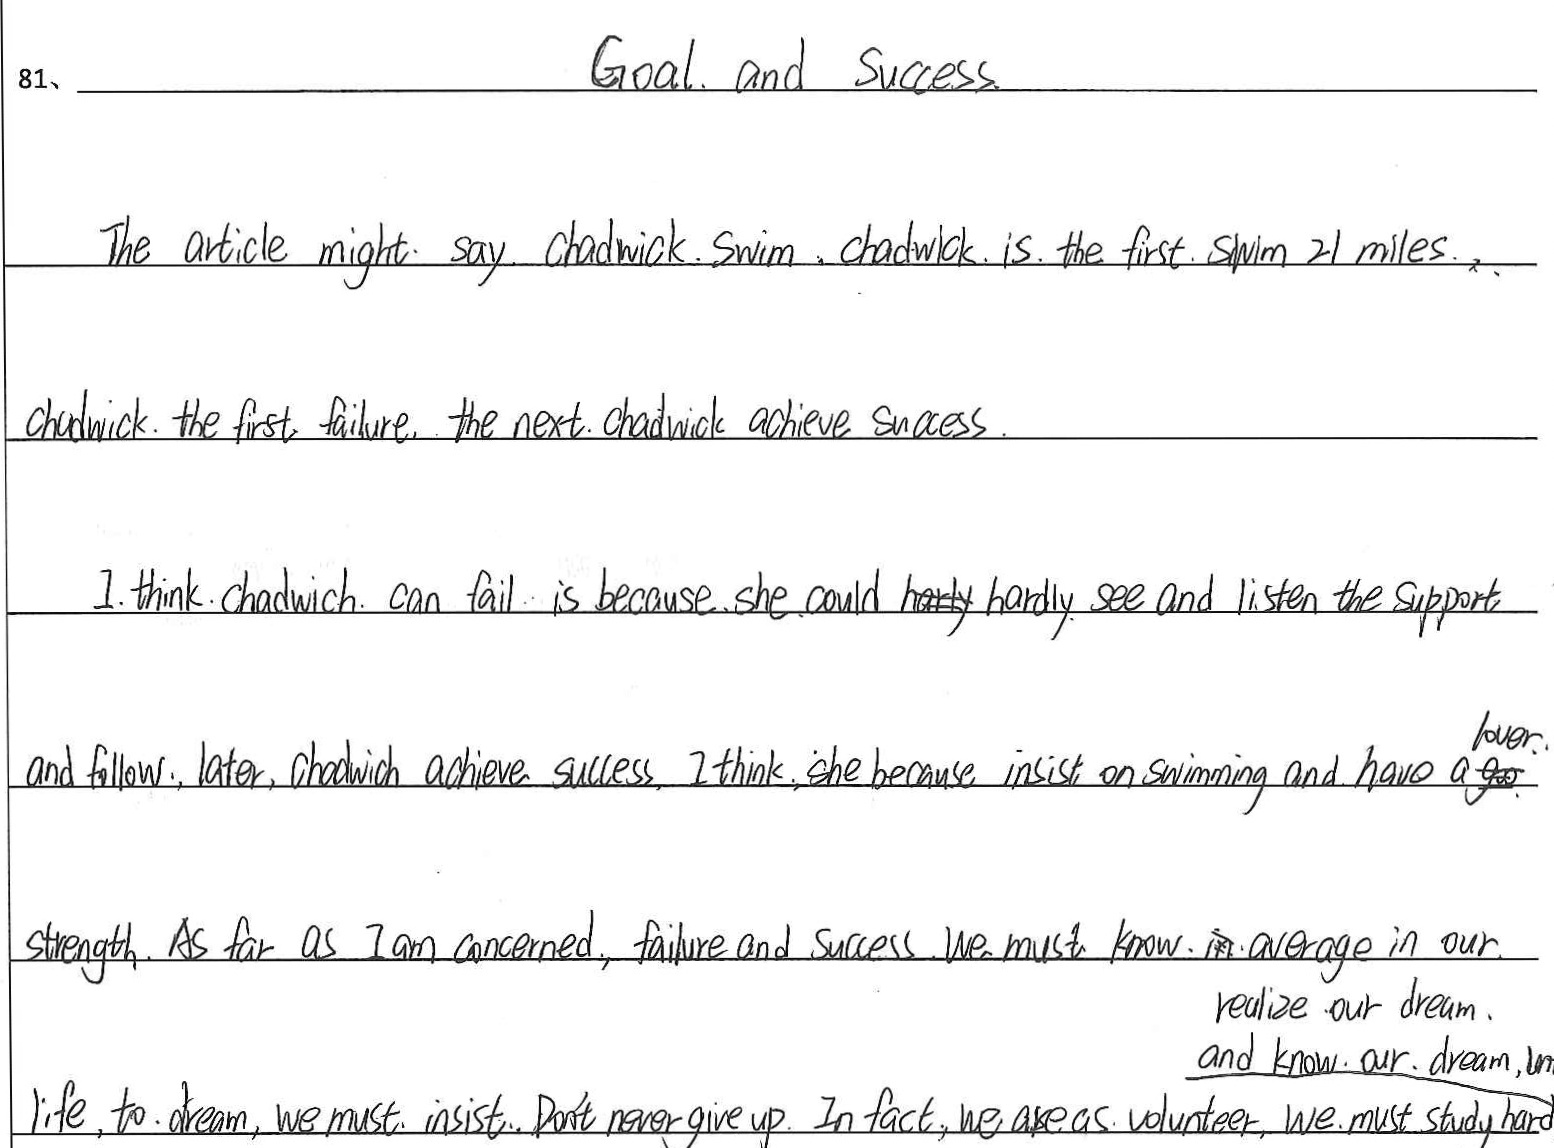 81、 Goal and Success
The article might say chadwick swim, chadwick is the first swim 21 miles.
chadwick the first failure, the next chadwick achieve success.
I think chadwich can fail is because she could hardly see and listen the support
lover.
and follow, later, chadwich achieve success, I think, she because insist on swimming and have a
strength. As far as I am concerned, failure and success we must know average in our
realize our dream.
and know our dream,
life, to dream, we must insist. Don't never give up. In fact, we are as volunteer, we must study hard